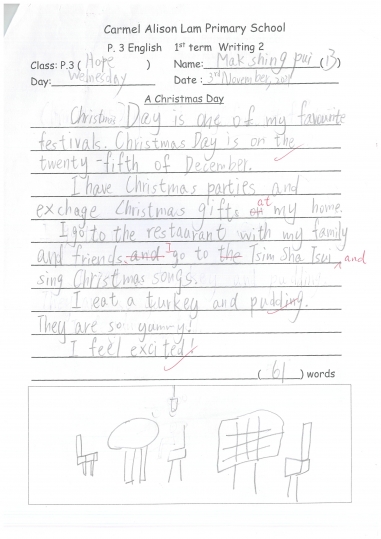 Carmel Alison Lam Primary School
P. 3 English 1st term Writing 2
Class: P.3 ( Hope ) Name: Mak shing pui (13)
Day: Wemesday Date : 3rd November, 20
A Christmas Day
Christmas Day is one of my favourite
festivals. Christmas Day is on the
twenty-fifth of December.
I have Christmas parties and
exchage Christmas gifts at my home.
I go to the restaurant with my family
and friends. and I go to the Tsim Sha Tsui and
sing Christmas songs.
I eat a turkey and pudding.
They are so yummy!
I feel excited!
( 61 ) words